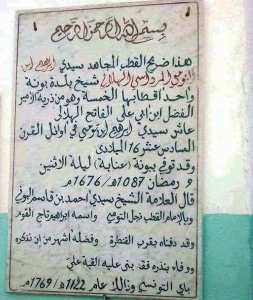 بسم الله الرحمن الرحيم
هذا ضريح القطب المجاهد سيدي إبراهيم ابن
التومي المرداسي الهلالي شيخ بلدة بونة
وأحد أقطابها الخمسة وهو من ذرية الأمير
الفضل ابن أبي علي الفاتح الهلالي
عاش سيدي إبراهيم ابن تومي في أوائل القرن
السادس عشر 16 الميلادي
وقد توفي ببونة (عنابة) ليلة الاثنين
9 رمضان 1087هـ / 1676م
قال العلامة الشيخ سيدي أحمد بن قاسم البوني
وبالإمام القطب نجل التومي وأسامه إبراهيم تاج القوم
وقد دفناه بقرب القنطرة وفضله أشهر من أن نذكره
ووفاء بنذره فقد بنى عليه القبة علي
باي التونسي وذلك عام 1122هـ / 1769م